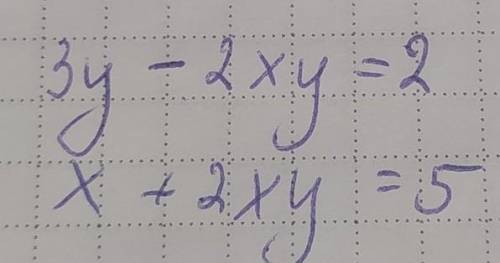 3y - 2xy = 2
x + 2xy = 5